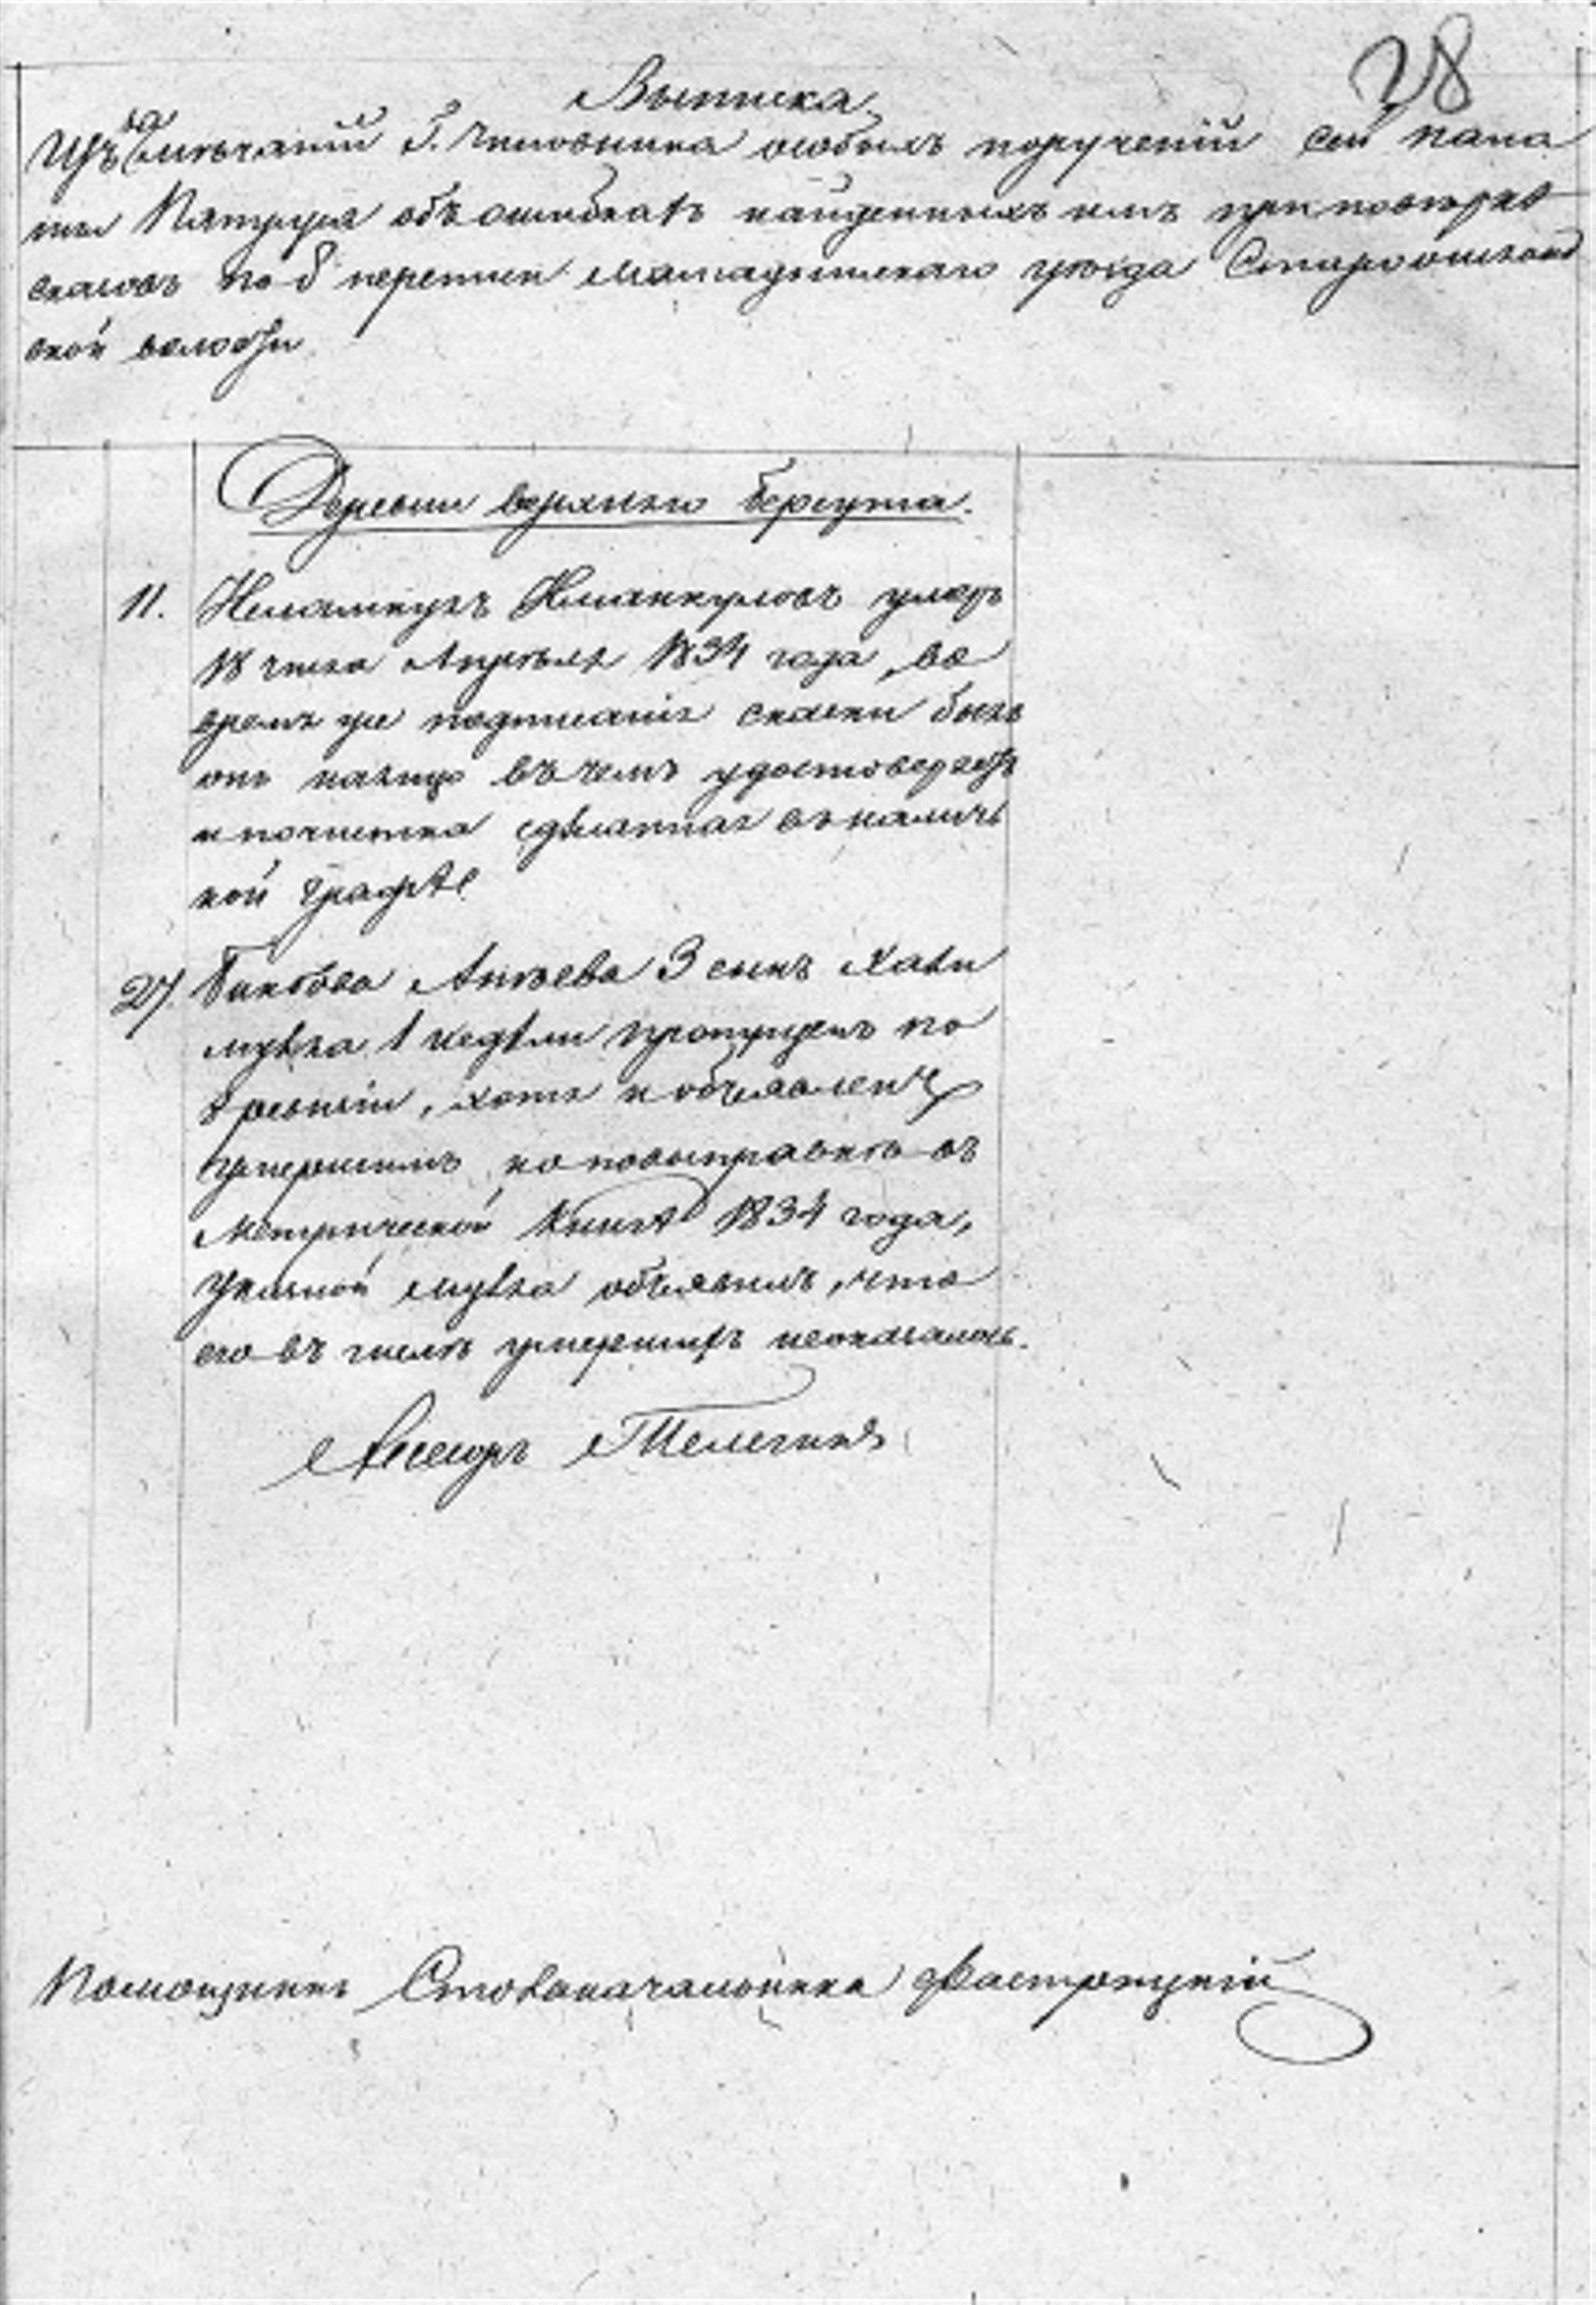 28
Выписка
Изъ замѣчаній Г. Чиновника особыхъ порученій сей пала
ты объ ошибкахъ найденныхъ имъ при повѣркѣ
сказокъ по 8 переписи Мамадышскаго уѣзда
ской волости
Деревни верхняго берсута.
11. умеръ
18 числа Апрѣля 1834 года, во
время же подписанія сказки былъ
онъ на лицо въ чемъ удостовѣряетъ
и почистка сдѣланная въ налич
ной графѣ
27. 3 сынъ Хали
мулла 1 недѣли пропущенъ по
ревизіи, хотя и объявленъ
умершимъ но по выправкѣ въ
Метрической Книгѣ 1834 года,
Указной мулла объявилъ, что
его въ числѣ умершихъ неоказалось.
Асессоръ Телегинъ
Помощникъ Столоначальника